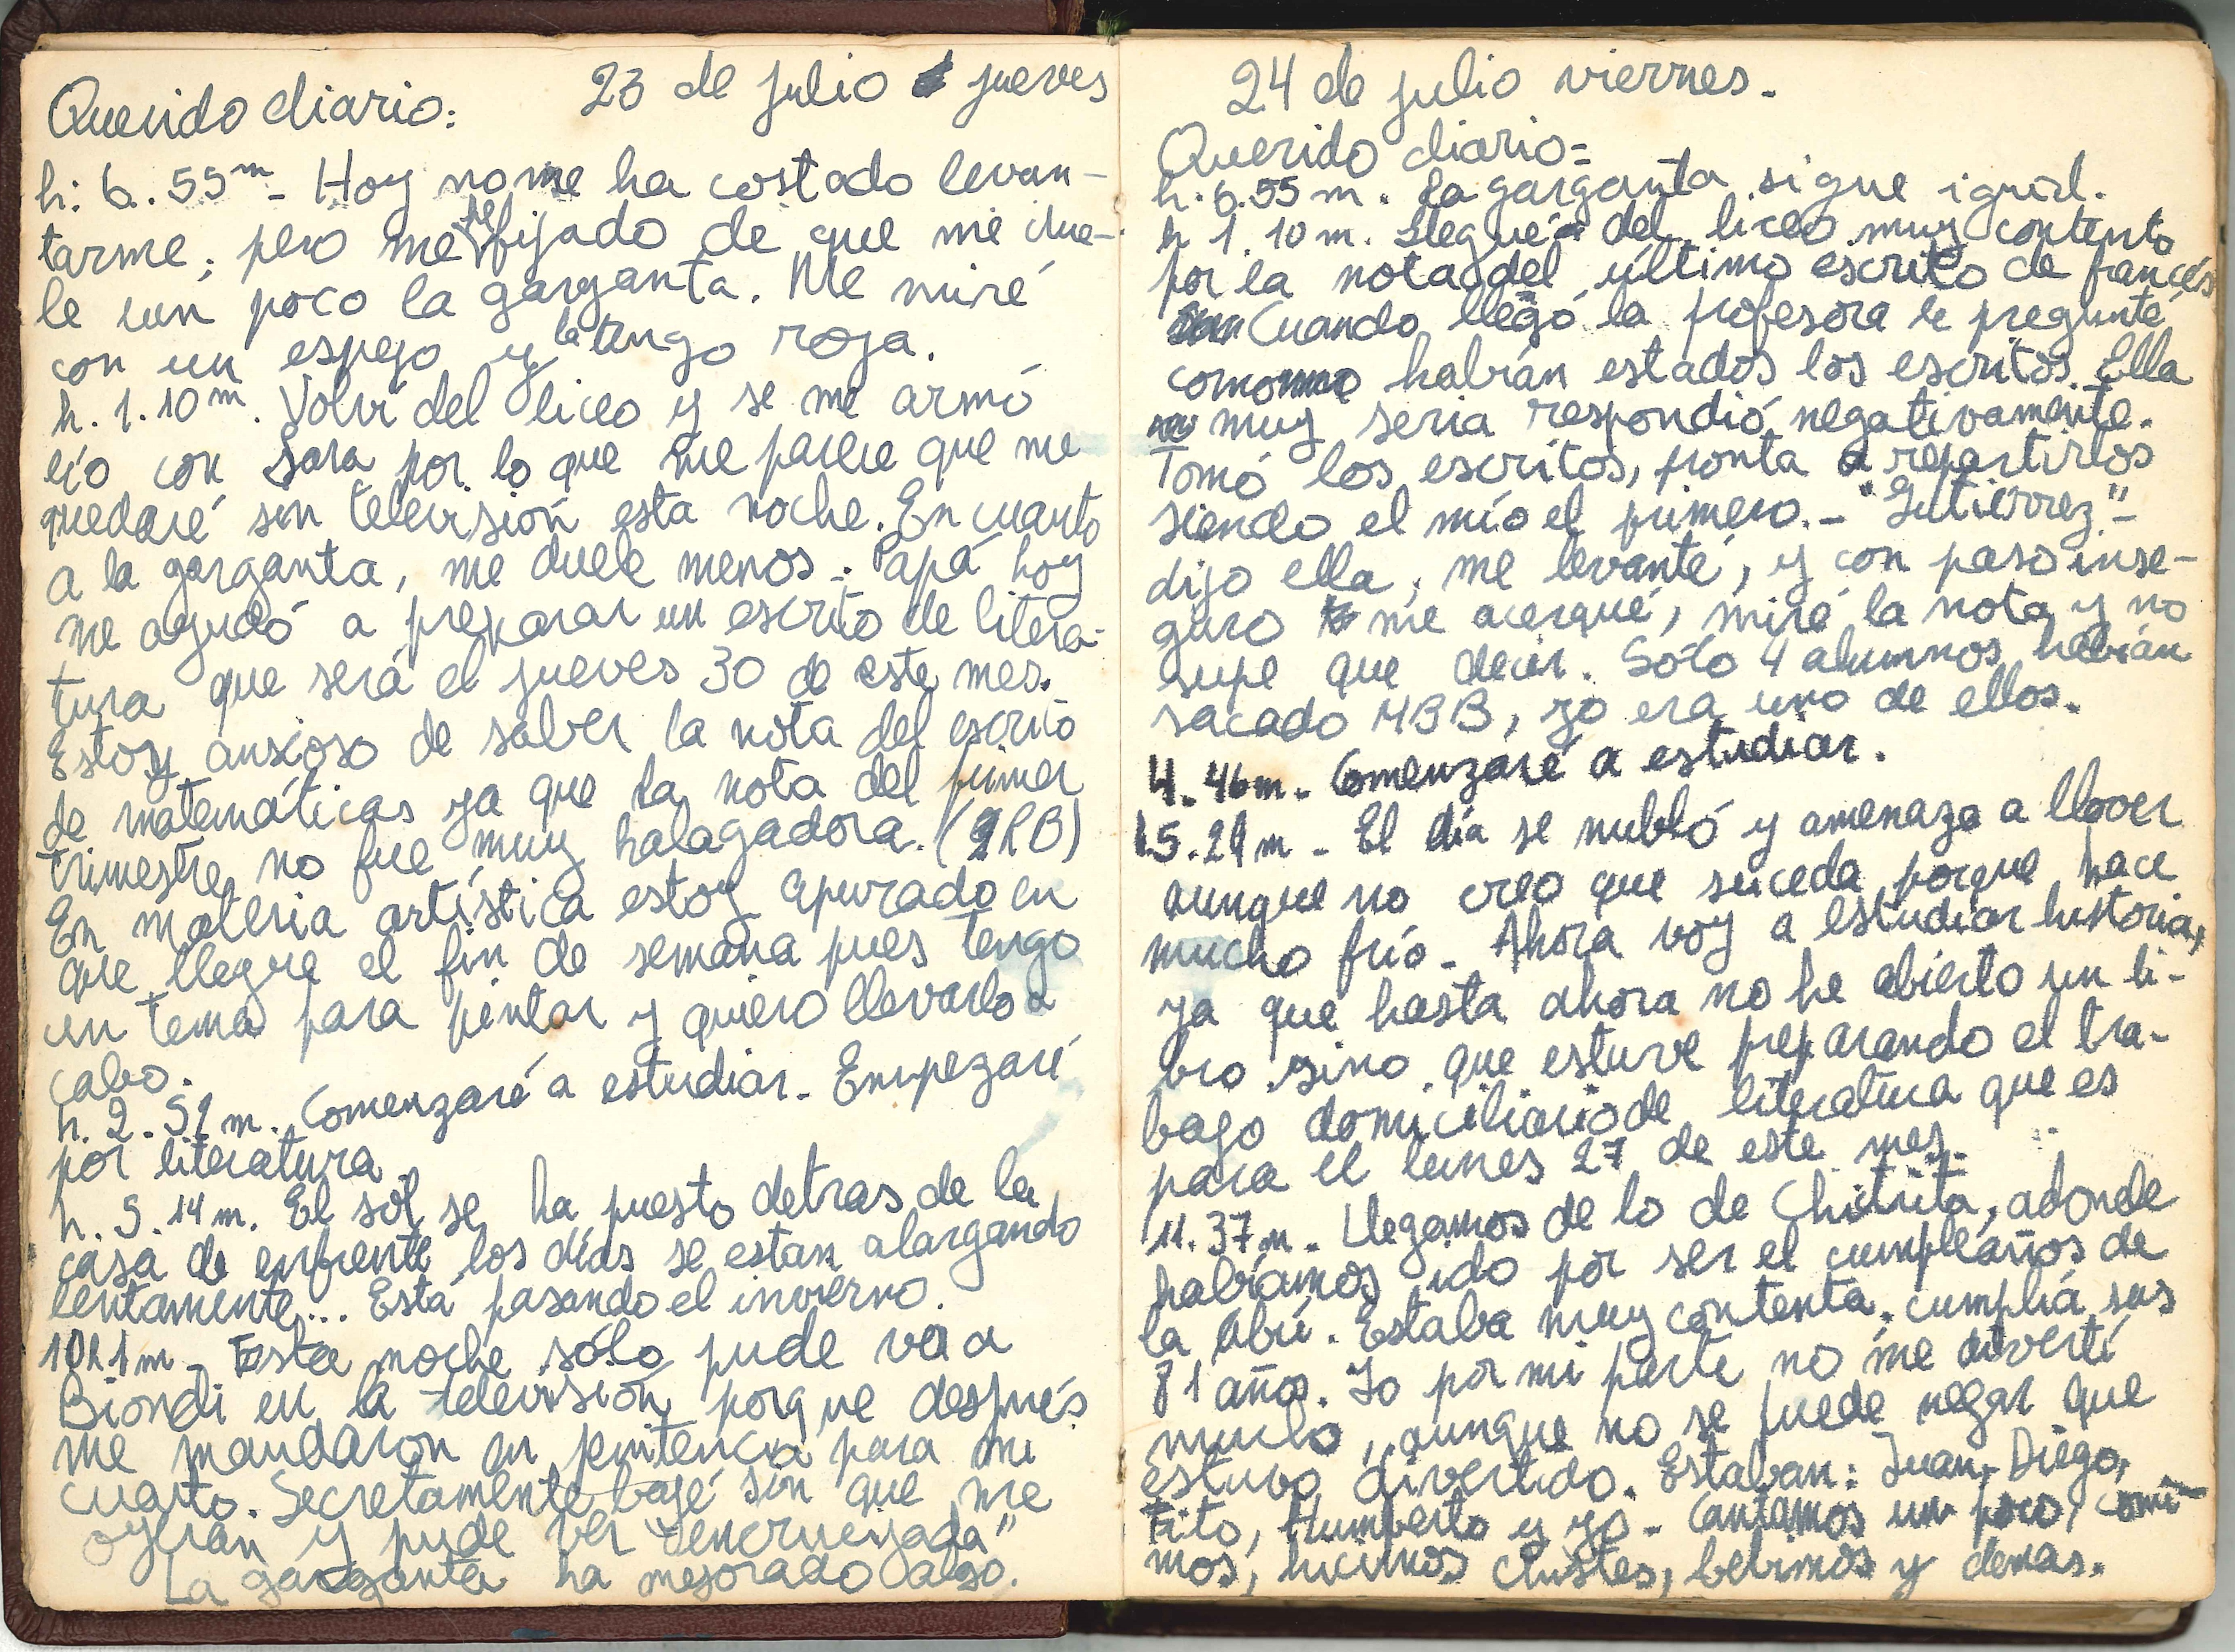 23 de julio jueves
Querido diario:
h: 6. 55m- Hoy no me ha costado levan-
tarme; pero me he fijado de que me due-
le un poco la garganta. Me miré
con un espejo y la tengo roja.
h. 1.10m. Volví del liceo y se me armó
lío con Sara por lo que me parece que me
quedaré sin televisión esta noche. En cuanto
a la garganta, me duele menos.- Papá hoy
me ayudó a preparar un escrito de litera-
tura que será el jueves 30 de este mes.
Estoy ansioso de saber la nota del escrito
de matemáticas ya que la nota del primer
trimestre no fue muy halagadora. (RB)
En materia artística estoy apurado en
que llegue el fin de semana pues tengo
un tema para pintar y quiero llevarlo a
cabo.
h. 2. 51m. Comenzaré a estudiar. Empezaré
por literatura.
h. 5. 14m. El sol se ha puesto detras de la
casa de enfrente los días se estan alargando
lentamente... Está pasando el invierno.
10h1m- Esta noche sólo pude ver a
Biondi en la televisión porque después
me mandaron en penitencia para mi
cuarto. Secretamente bajé sin que me
oyeran y pude ver "encrucijada"
La garganta ha mejorado algo.
24 de julio viernes.
Querido diario=
h. 6.55m. La garganta sigue igual.
h 1. 10m. Llegué del liceo muy contento
por la nota del último escrito de francés
Cuando llegó la profesora le pregunté
como habían estados los escritos. Ella
muy seria respondió negativamente.
Tomó los escritos, pronta a repartirlos
siendo el mío el primero.- "Gutierrez"-
dijo ella, me levanté, y con paso inse-
guro me acerqué, miré la nota y no
supe que decir. Sólo 4 alumnos habían
sacado MBB, yo era uno de ellos.
4. 46m. Comenzaré a estudiar.
5. 29m - El día se nubló y amenaza a llover
aunque no creo que suceda porque hace
mucho frío. Ahora voy a estudiar historia,
ya que hasta ahora no he abierto un li-
bro sino que estuve preparando el tra-
bajo domiciliario de literatura que es
para el lunes 27 de este mes.
11. 37m. Llegamos de lo de Chitita, adonde
habíamos ido por ser el cumpleaños de
la Abu. Estaba muy contenta. cumplía sus
81 años. Yo por mi parte no me divertí
mucho, aunque no se puede negar que
estuvo divertido. Estaban: Juan, Diego,
Tito, Humberto y yo. Cantamos un poco, comi-
mos, hicimos chistes, bebimos y demas.